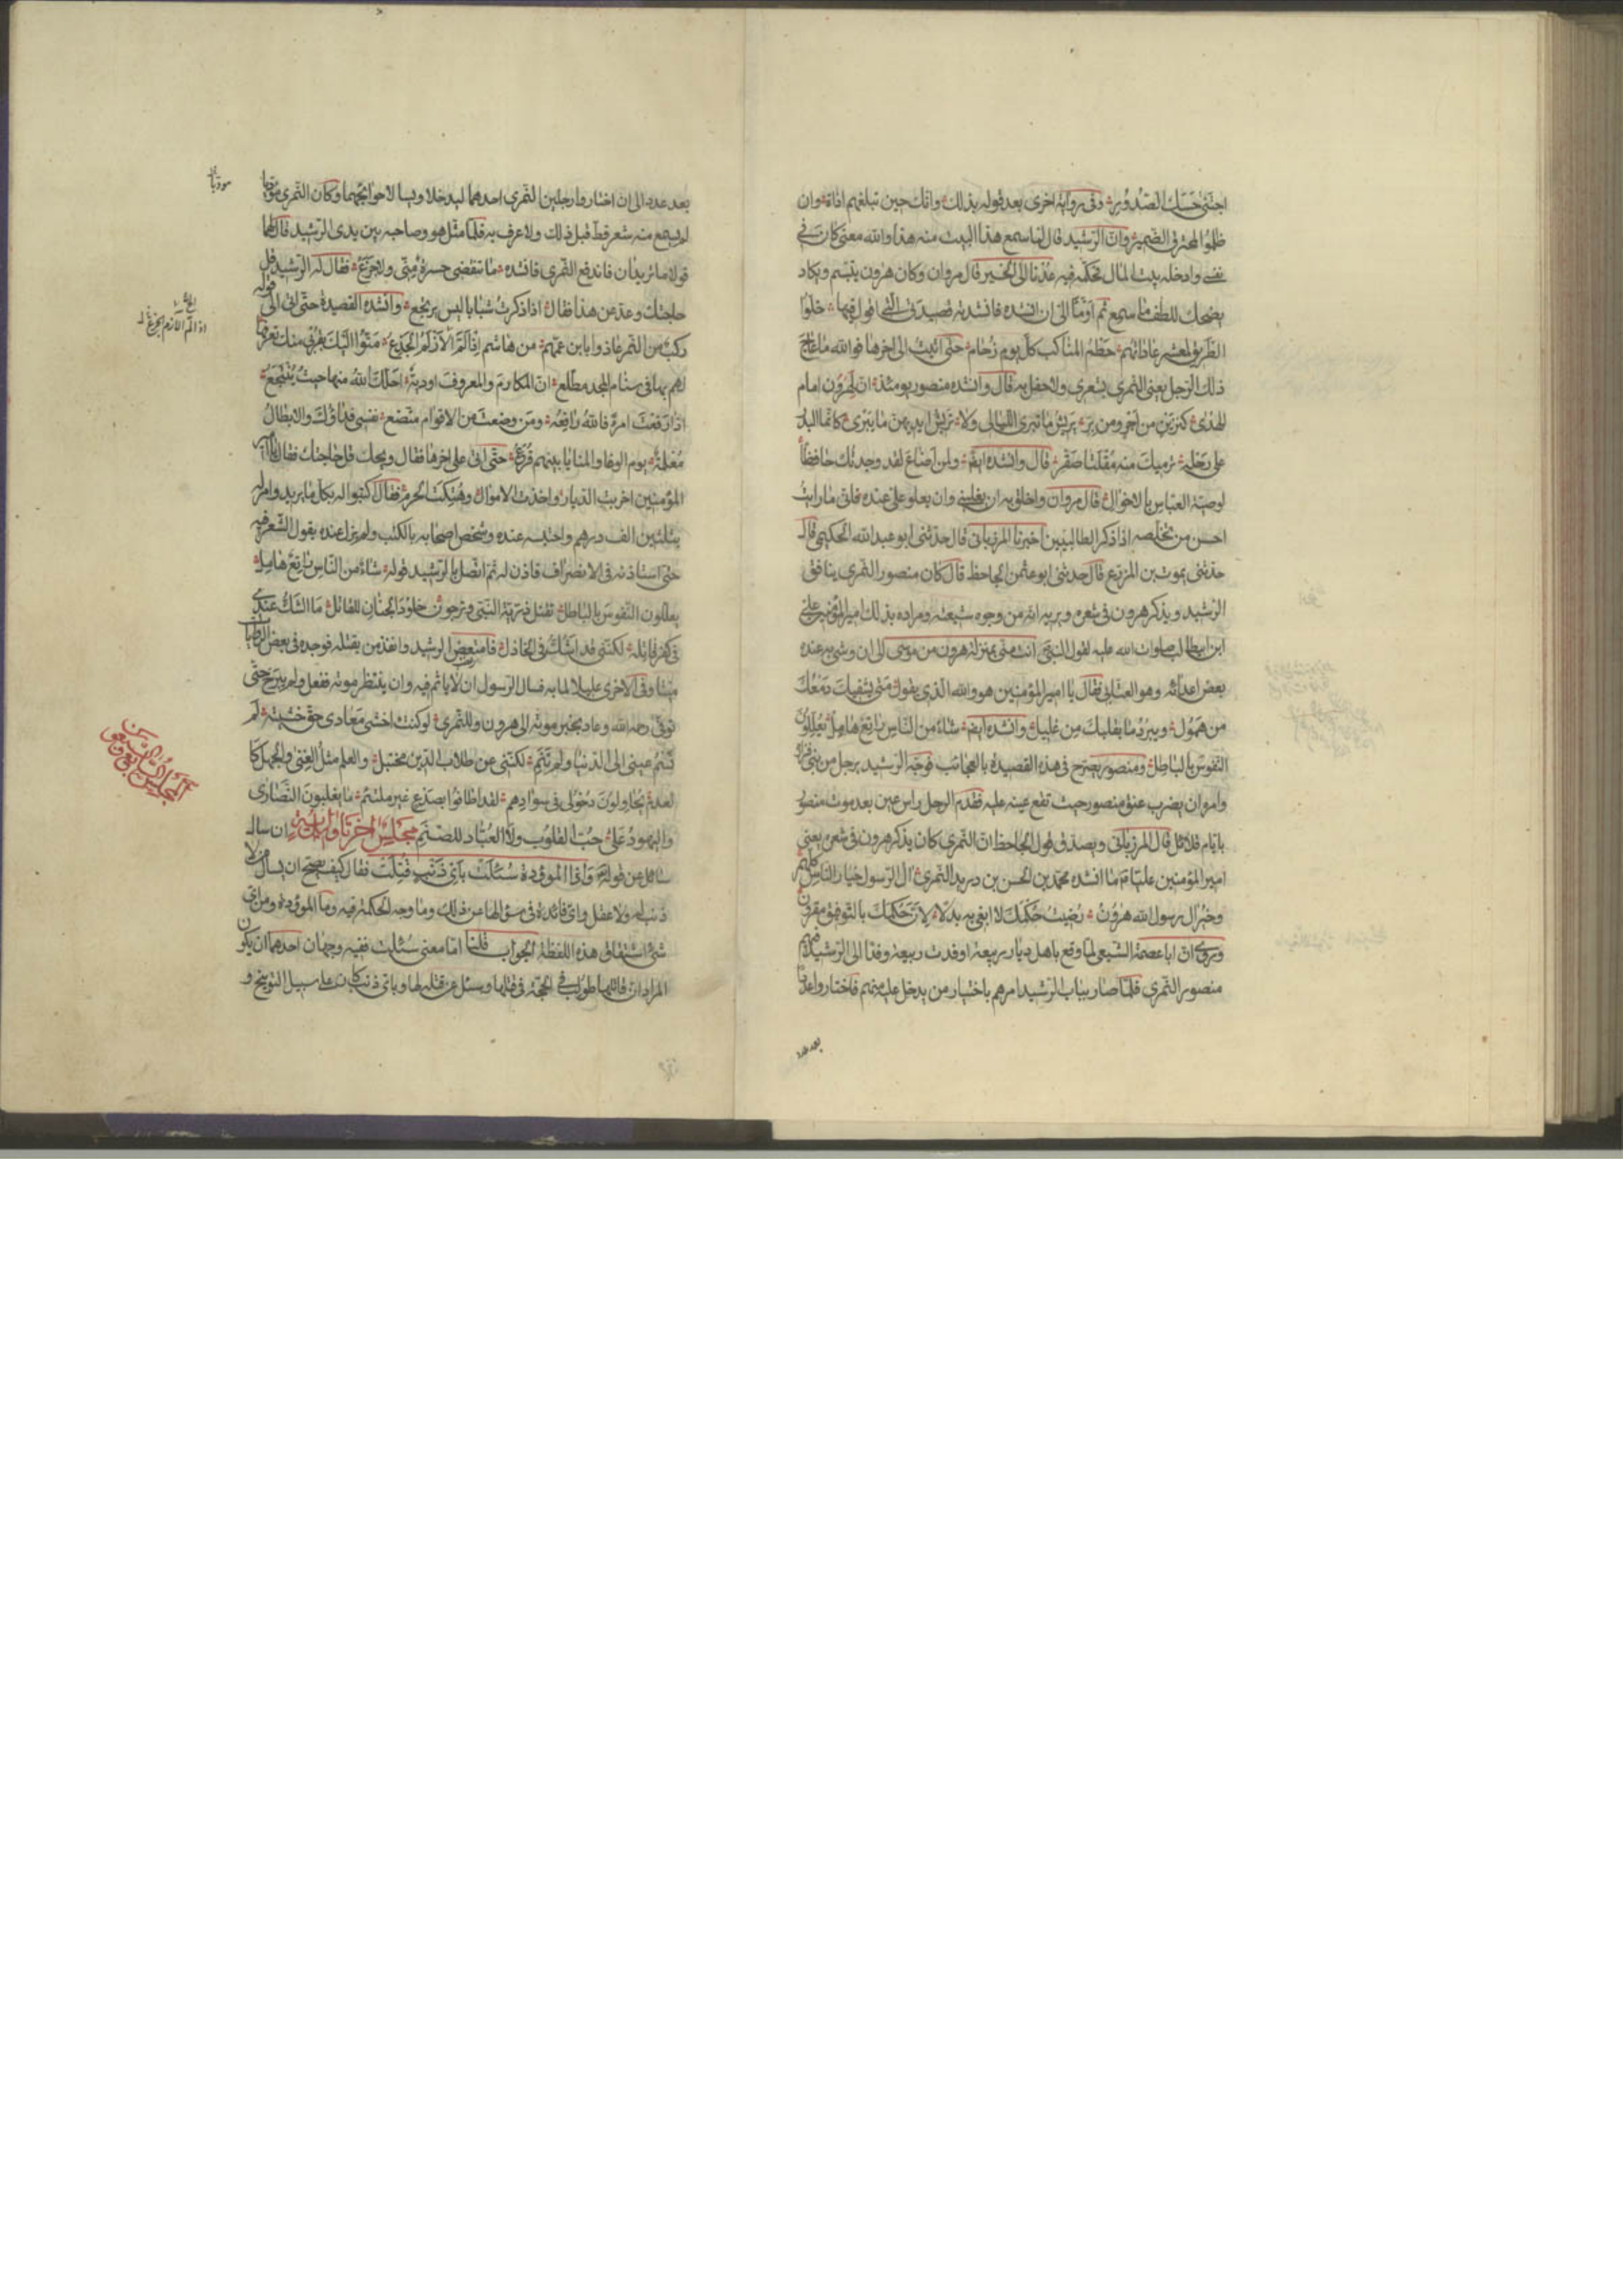 اجتنى حسك الصدور وفى رواية اخرى بعد قوله بذلك وانك حين تبلغهم اذاة وان
ظلموا لمحترق الضمير وان الرشيد قال لما سمع هذا البيت منه هذا والله معنى كان فى
نفسى وادخله بيت المال تحكمه فيه عدنا الى الخبر قال مروان وكان هرون يتبسم ويكاد
يضحك للطف ما سمع ثم اومأ الى ان انشده فانشدته قصيدتى التى اقول فيها خلوا
الطريق لمعشر عاداتهم حطم المناكب كل يوم زحام حتى اتيت الى اخرها فوالله ما عاج
ذلك الرجل يعنى النمرى بشعرى ولا حفل به قال وانشده منصور يومئذ ان لهرون امام
الهدى كنزين من اجر ومن بر يريش ما تبرى الليالى ولا تريش ايديهن ما يبرى كانما البدر
على رحله ترميك منه مقلتا صقر قال وانشده ايضا ولمن اضاع لقد وجدتك حافظا
لوصية العباس بالاخوال قال مروان واخلق به ان يغلبنى وان يعلو على عنده فانى ما رايت
احسن من تخلصه اذا ذكر الطالبيين اخبرنا المرزبانى قال حدثنى ابو عبد الله الحكيمى قال
حدثنى يموت بن المزرع قال حدثنى ابو عثمن الجاحظ قال كان منصور النمرى ينافق
الرشيد ويذكر هرون فى شعره ويريه انه من وجوه شيعته ومراده بذلك امير المؤمنين على
ابن ابيطالب صلوات الله عليه لقول النبى انت منى بمنزلة هرون من موسى الى ان وشى به عنده
بعض اعدائه وهو العتابى فقال يا امير المؤمنين هو والله الذى يقول متى يشفيك دمعك
من همول ويبرد ما بقلبك من غليل وانشده ايضا شاء من الناس راتع هامل يعللون
النفوس بالباطل ومنصور يصرح فى هذه القصيدة بالعجائب فوجه الرشيد برجل من بنى فزارة
وامره ان يضرب عنق منصور حيث تقع عينه عليه فقدم الرجل راس عين بعد موت منصور
بايام قلائل قال المرزبانى ويصدق قول الجاحظ ان النمرى كان يذكر هرون فى شعره يعنى
امير المؤمنين عليا م ما انشده محمد بن الحسن بن دريد للنمرى ال الرسول خيار الناس كلهم
وخير ال رسول الله هرون رضيت حكمك لا ابغى به بدلا لان حكمك بالتوفيق مقرون
وروى ان ابا عصمة الشيعى لما وقع باهل ديار ربيعة اوفدت ربيعة وفدا الى الرشيد فيهم
منصور النمرى فلما صار بباب الرشيد امرهم باختيار من يدخل عليه منهم فاختاروا عددا
بعد عدد
بعد عدد الى ان اختاروا رجلين النمرى احدهما ليدخلا ويسالا حوائجهما وكان النمرى مؤدبا
لم يسمع منه شعر قط قبل ذلك ولا عرف به فلما مثل هو وصاحبه بين يدى الرشيد قال لهما
قولا ما تريدان فاندفع النمرى فانشده ما تنقضى حسرة منى ولا جزع فقال له الرشيد قل
حاجتك وعد عن هذا فقال اذا ذكرت شبابا ليس يرتجع وانشده القصيدة حتى اتى الى قوله
ركب من النمر عاذوا بابن عمهم من هاشم اذ الم الازلم الجذع متوا اليك بقربى منك تعرفها
لهم بها فى سنام المجد مطلع ان المكارم والمعروف اودية احلك الله منها حيث تنتجع
اذا رفعت امرءا فالله رافعه ومن وضعت من الاقوام متضع نفسى فداؤك والابطال
معلمة يوم الوغا والمنايا بينهم قرع حتى اتى على اخرها فقال ويحك قل حاجتك فقال يا امير
المؤمنين اخربت الديار واخذت الاموال وهتكت الحرم فقال اكتبوا له بكل ما يريد وامر له
بثلثين الف درهم واحتبسه عنده وشخص اصحابه بالكتب ولم يزل عنده يقول الشعر فيه
حتى استاذنه فى الانصراف فاذن له ثم اتصل بالرشيد قوله شاء من الناس راتع هامل
يعللون النفوس بالباطل تقتل ذرية النبى ويرجون خلود الجنان للقاتل ما الشك عندى
فى كفر قاتله لكننى قد اشك فى الخاذل فامتعض الرشيد وانفذ من يقتله فوجده فى بعض الروايات
ميتا وفى الاخرى عليلا لما به فسال الرسول ان لا ياثم فيه وان ينتظر موته ففعل ولم يبرح حتى
توفى رحمه الله وعاد بخبر موته الى هرون وللنمرى لو كنت اخشى معادى حق خشيته لم
تسم عينى الى الدنيا ولم تنم لكننى عن طلاب الدين مختبل والعلم مثل الغنى والجهل كا
لعدم يحاولون دخولى فى سوادهم لقد اطافوا بصدع غير ملتئم ما يغلبون النصارى
واليهود على حب القلوب ولا العباد للصنم مجلس اخر تاويل اية ان سال
سائل عن قوله واذا الموؤدة سئلت باى ذنب قتلت فقال كيف يصح ان يسال من لا
ذنب له ولا عقل واى فائدة فى سؤالها عن ذلك وما وجه الحكمة فيه وما الموؤدة ومن اى
شئ اشتقاق هذه اللفظة الجواب قلنا اما معنى سئلت ففيه وجهان احدهما ان يكون
المراد ان قاتلها طولب فى الحجة فى قتلها وسئل عن قتله لها وباى ذنب كان على سبيل التوبيخ و